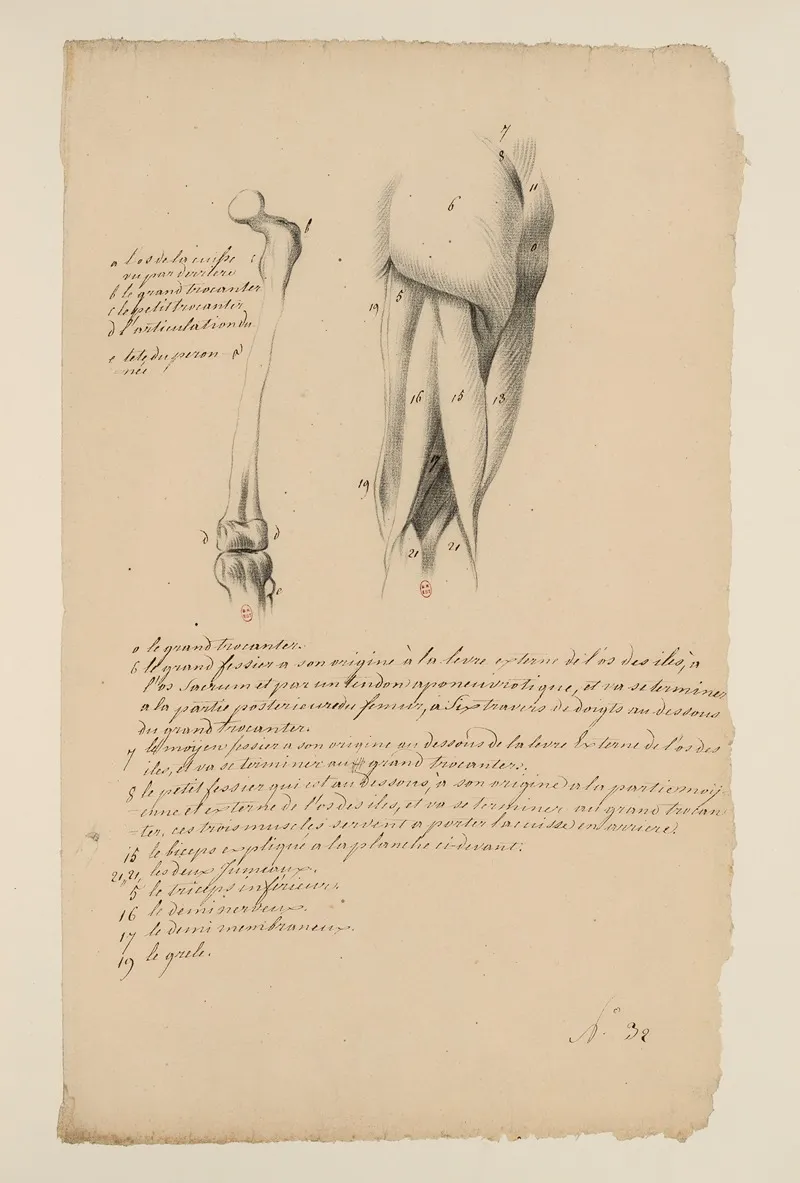 a l'os de la cuisse
vu par derriere
b le grand trocanter
c le petit trocanter
d l'articulation du
e tete du peron-
=née
b
c
a
d
d
e
7
8
11
6
0
19
5
16
15
18
17
19
21
21
o le grand trocanter.
6 le grand fessier a son origine à la levre externe de l'os des iles, a
l'os Sacrum et par un tendon aponeuvrotique, et va se terminer
a la partie posterieure du femur, a Six travers de doigts au-dessous
du grand trocanter.
7 le moyen fessier a son origine au dessous de la levre Externe de l'os des
iles, et va se terminer au grand trocanter.
8 le petit fessier qui est au dessous, a son origine a la partie moij-
=enne et externe de l'os des iles, et va se terminer au grand trocan
=ter. ces trois muscles servent a porter la cuisse en arriere.
15 le biceps expliqué a la planche ci-devant.
21, 21, les deux Jumeaux.
5 le triceps inférieur.
16 le demi nerveux.
17 le demi membraneux.
19 le grele.
N.° 32